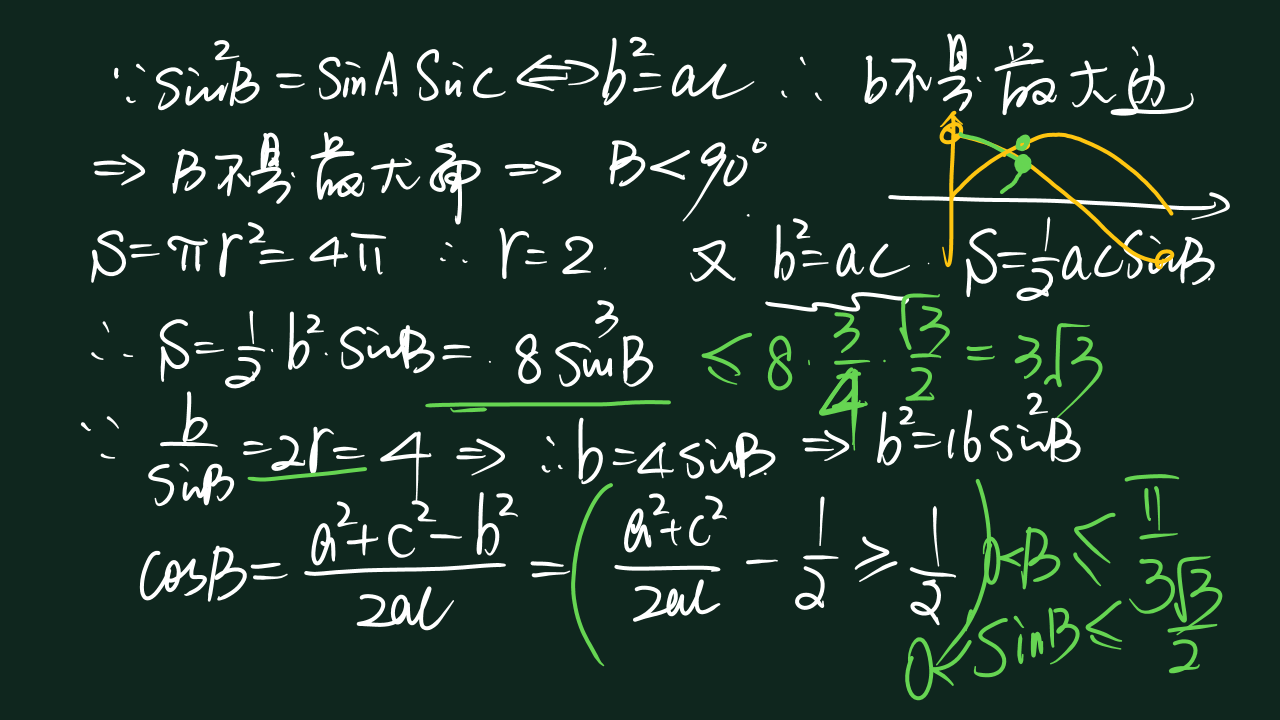 ∵ sin²B = sinA sinC ⟺ b² = ac ∴ b不是最大边
⇒ B不是最大角 ⇒ B < 90°
S = πr² = 4π ∴ r = 2. 又 b² = ac. S = 1/2 ac sinB
∴ S = 1/2 · b² · sinB = 8 sin³B ≤ 8 · 3/4 · √3/2 = 3√3
∵ b/sinB = 2r = 4 ⇒ ∴ b = 4 sinB ⇒ b² = 16 sin²B
cosB = (a² + c² − b²)/(2ac) = (a² + c²)/(2ac) − 1/2 ≥ 1/2
0 < B ≤ π/3
0 < sinB ≤ √3/2